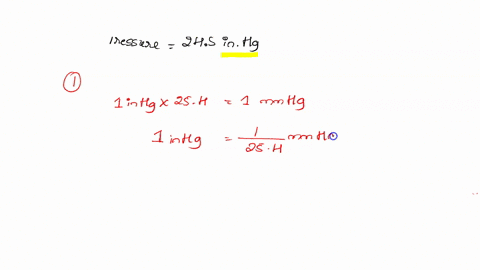 Pressure = 24.5 in.Hg
①
1 inHg × 25.4 = 1 mmHg
1 inHg = 1/25.4 mmHg